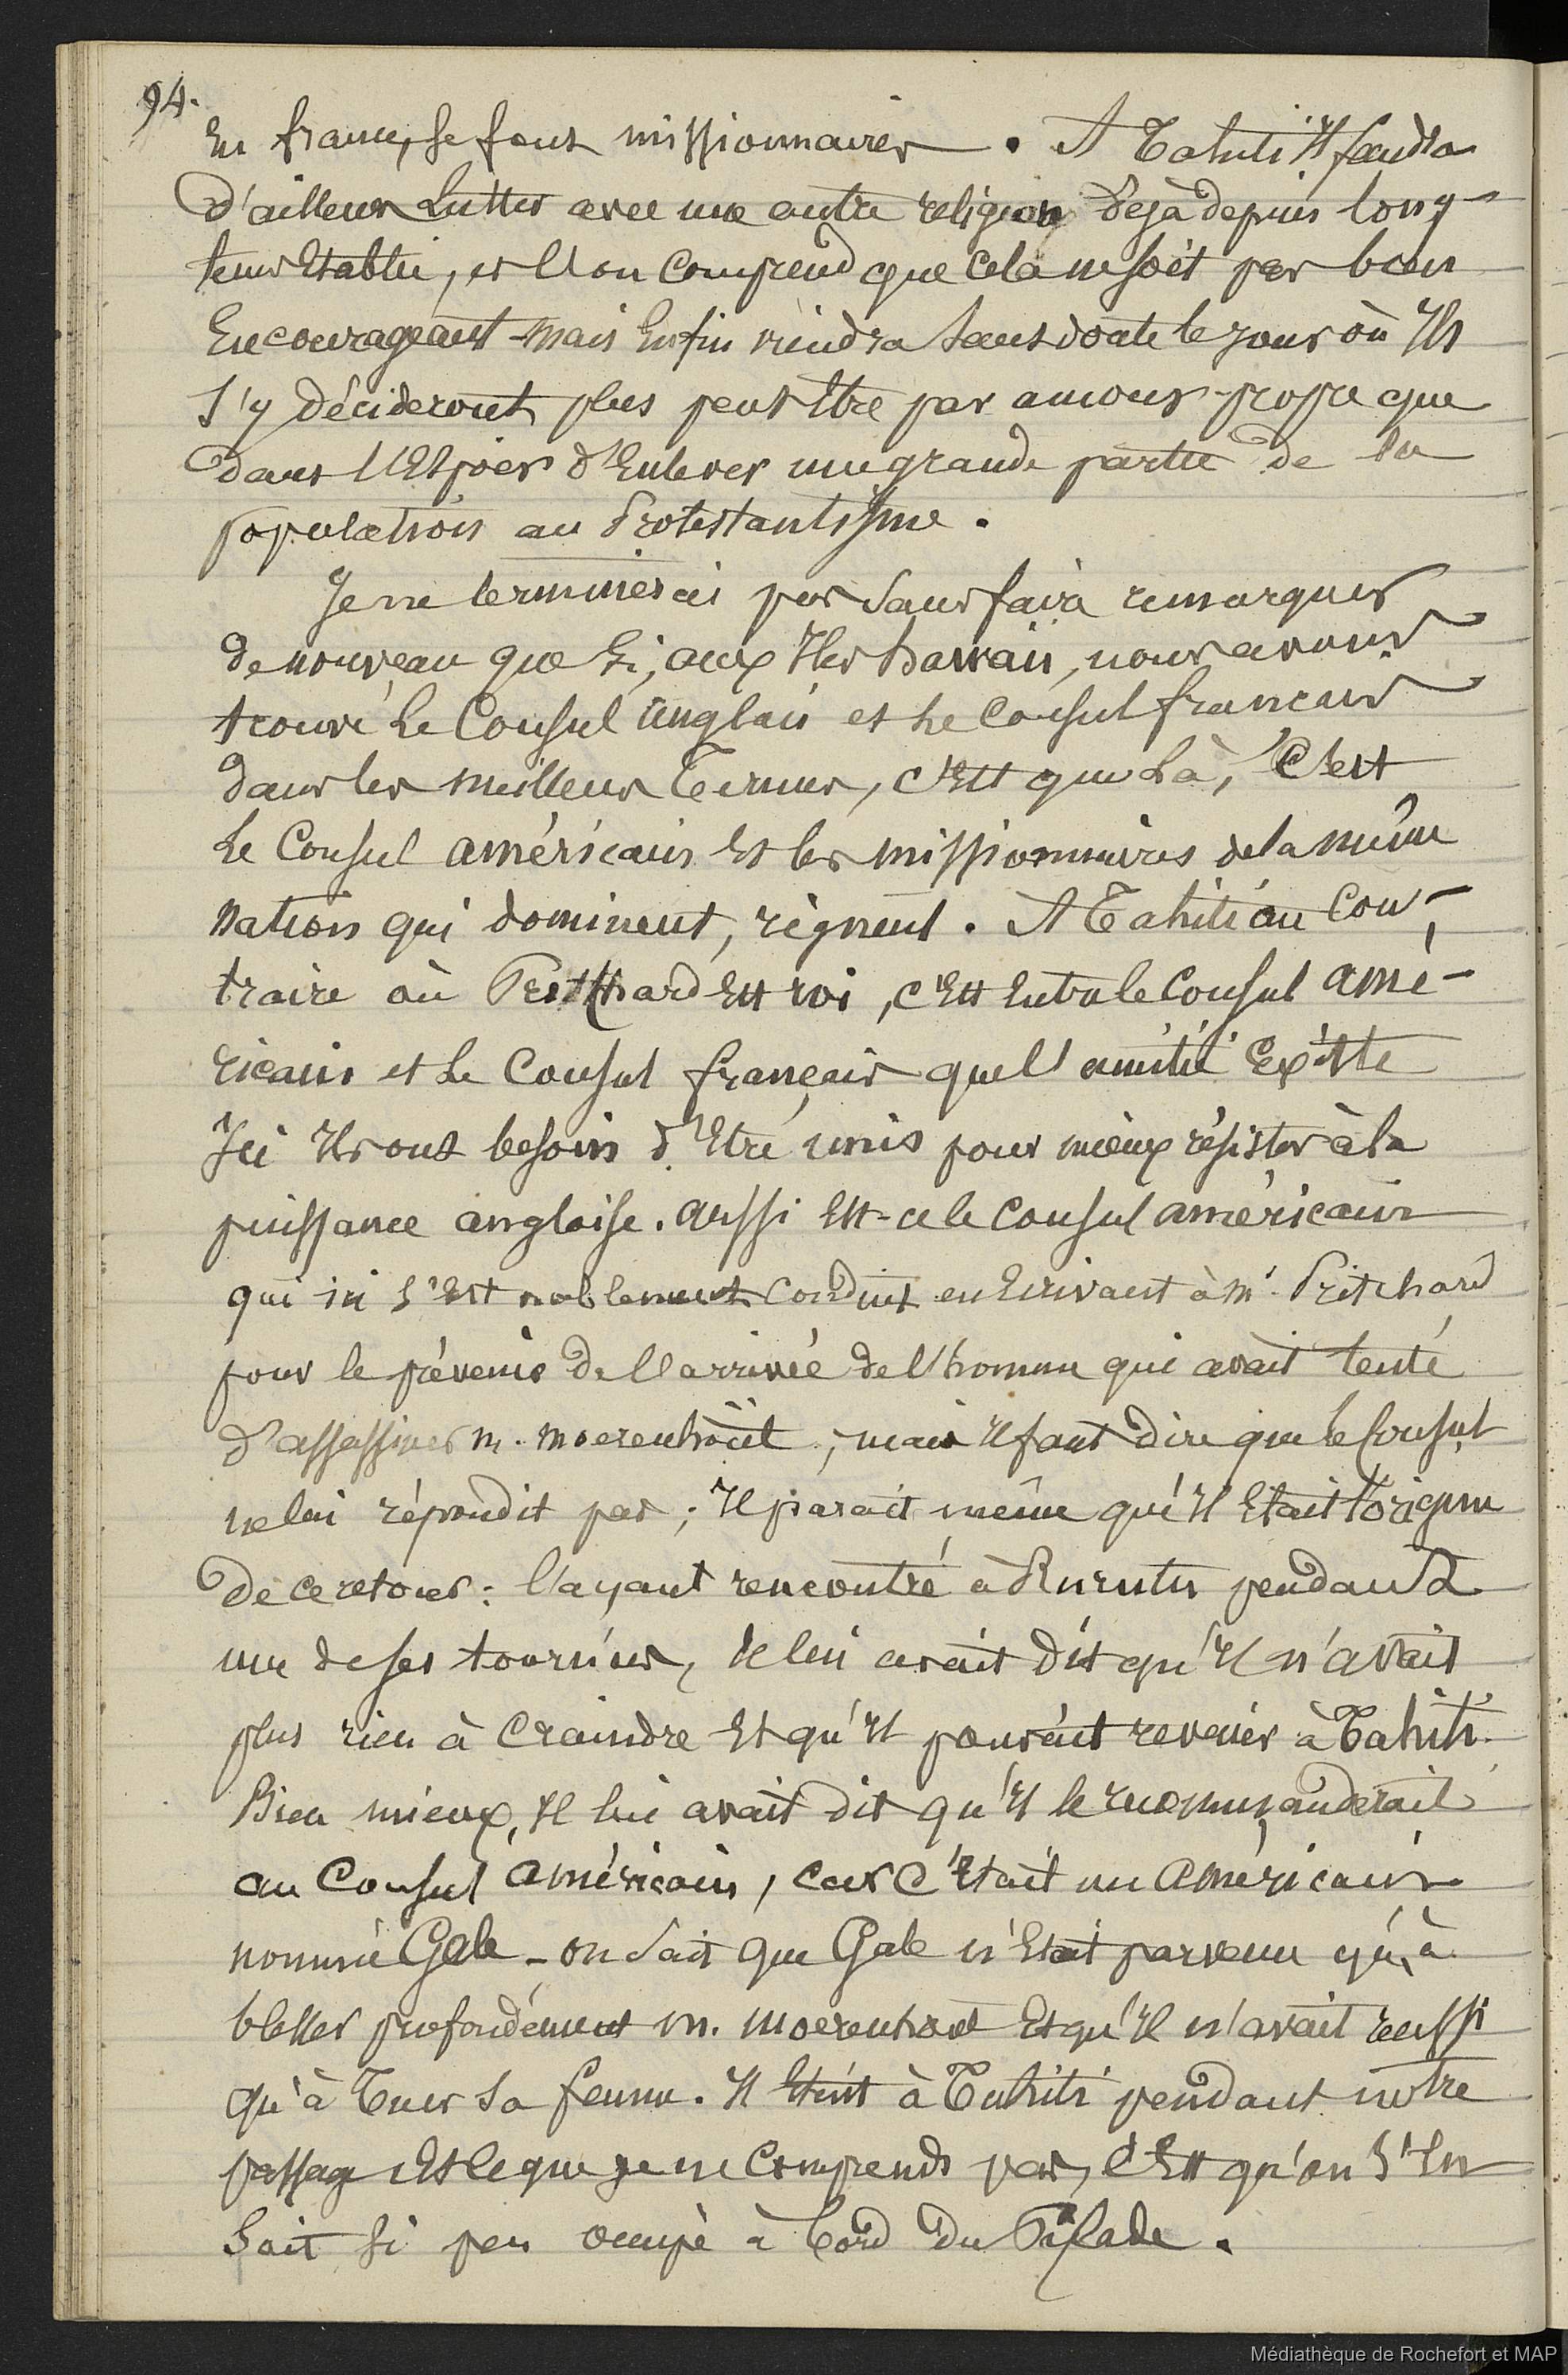 94.
En france, se font missionnaires. A Tahiti Il faudra
d'ailleurs Lutter avec une autre religion Déjà depuis long-
tems Etablie, et l'on Comprend que Cela ne soit pas bien
Encourageant - Mais Enfin viendra Sans doute le jour où Ils
S'y Décideront, plus peut Etre par amour-propre que
dans l'Espoir d'Enlever une grande partie de la
population au Protestantisme.
Je ne terminerai pas Sans faire remarquer
de nouveau que Si, aux Iles hawaii, nous avons
trouvé Le Consul Anglais et Le Consul francais
dans les Meilleurs Termes, c'Est que Là, C'est
Le Consul américain Et les missionnaires de la même
Nation qui dominent, règnent. A Tahiti au Con-
traire où Pritchard Est roi, c'Est Entre le Consul amé-
ricain et Le Consul français que l'amitié Existe
Ici Ils ont besoin d'Etre unis pour mieux résister à la
puissance anglaise. aussi Est-ce le Consul américain
qui ici s'Est noblement Conduit en Ecrivant à Mr. Pritchard
pour le prévenir De l'arrivée de l'homme qui avait tenté
d'assassiner M. Moerenhoüt ; mais Il faut dire que le Consul
ne lui répondit pas ; Il parait même qu'Il Etait l'origine
De ce retour : l'ayant rencontré à Rurutu pendant
une de ses tournées, Il lui avait Dit qu'Il n'avait
plus rien à Craindre Et qu'Il pouvait revenir à Tahiti.
Bien mieux, Il lui avait dit qu'Il le recommanderait
au Consul américain, car C'Etait un Américain
nommé Gale - on Sait que Gale n'Etait parvenu qu'à
blesser profondément M. Moerenhout Et qu'Il n'avait reussi
qu'à Tuer Sa femme. Il Etait à Tahiti pendant notre
passage Et Ce que je ne Comprends pas, C'Est qu'on S'En
Soit Si peu Occupé à bord Du Pilade.
Médiathèque de Rochefort et MAP